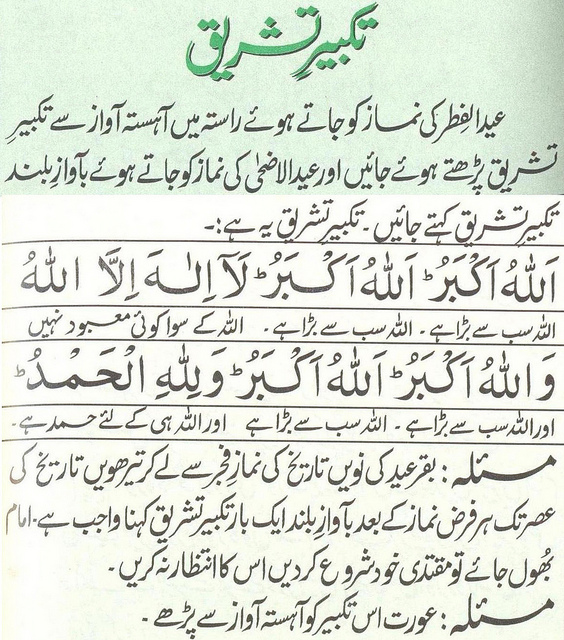 تکبیرِ تشریق
عیدالفِطر کی نماز کو جاتے ہوئے راستہ میں آہستہ آواز سے تکبیرِ
تشریق پڑھتے ہوئے جائیں اور عیدالاضحٰی کی نماز کو جاتے ہوئے بآوازِ بلند
تکبیرِ تشریق کہتے جائیں۔ تکبیرِ تشریق یہ ہے:۔
اَللهُ اَكْبَرُ ؕ اَللهُ اَكْبَرُ ؕ لَآ اِلٰهَ اِلَّا اللهُ
اللہ سب سے بڑا ہے۔ اللہ سب سے بڑا ہے۔ اللہ کے سوا کوئی معبود نہیں
وَاللهُ اَكْبَرُ ؕ اَللهُ اَكْبَرُ ؕ وَلِلّٰهِ الْحَمْدُ ؕ
اور اللہ سب سے بڑا ہے۔ اللہ سب سے بڑا ہے اور اللہ ہی کے لئے حمد ہے۔
مسئلہ: بقرعید کی نویں تاریخ کی نمازِ فجر سے لے کر تیرھویں تاریخ کی
عصر تک ہر فرض نماز کے بعد بآوازِ بلند ایک بار تکبیرِ تشریق کہنا واجب ہے۔ امام
بُھول جائے تو مقتدی خود شروع کردیں اس کا انتظار نہ کریں۔
مسئلہ: عورت اس تکبیر کو آہستہ آواز سے پڑھے۔